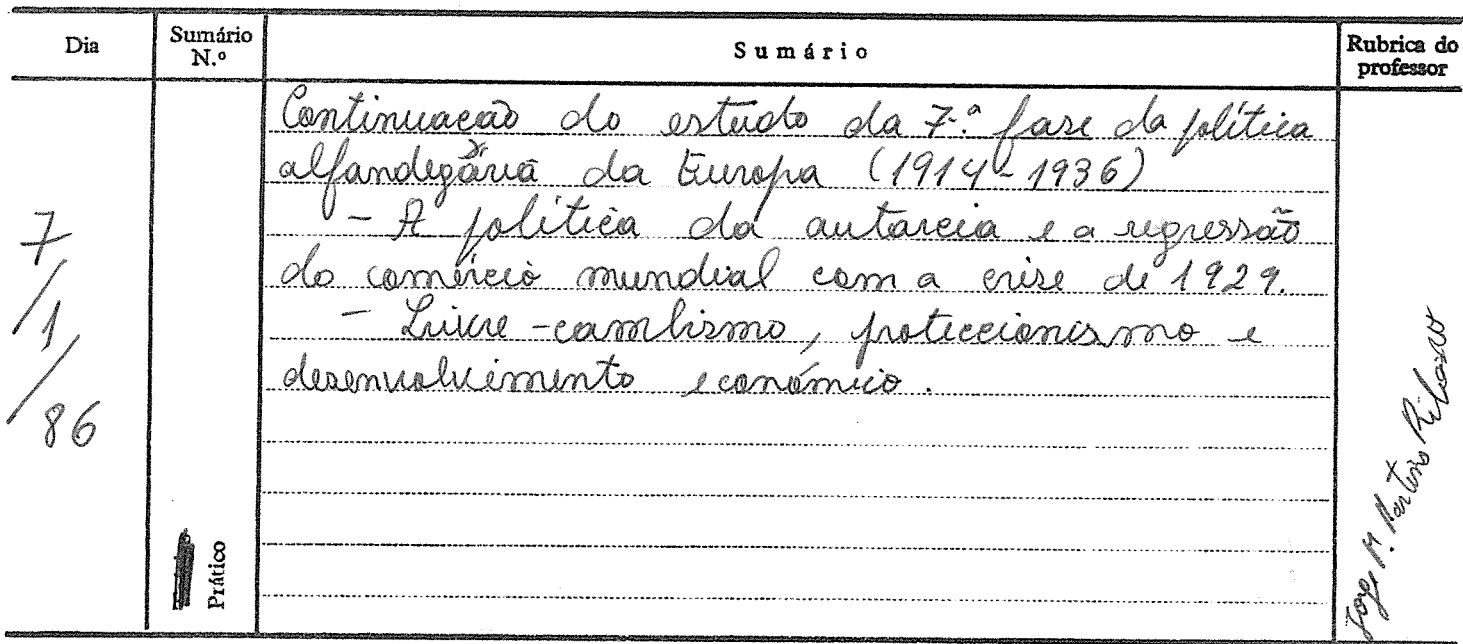 Dia
Sumário N.º
Sumário
Rubrica do professor
7/1/86
Continuação do estudo da 7.ª fase da política
alfandegária da Europa (1914-1936)
- A política da autarcia e a regressão
do comércio mundial com a crise de 1929.
- Livre-cambismo, proteccionismo e
desenvolvimento económico.
Prático
Jorge M. Martins Ribeiro